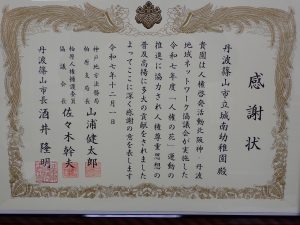 感謝状
丹波篠山市立城南幼稚園殿
貴園は人権啓発活動北阪神 丹波
地域ネットワーク協議会が実施した
令和七年度「人権の花」運動の
推進に協力され人権尊重思想の
普及高揚に多大の貢献をされました
よってここに深く感謝の意を表します
令和七年十二月一日
神戸地方法務局
柏原支局長 山浦健太郎
柏原人権擁護委員
協議会長 佐々木幹夫
丹波篠山市長 酒井隆明